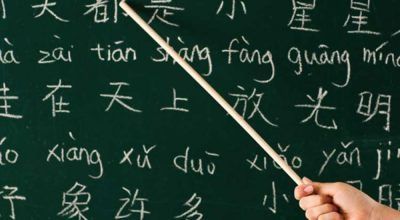 天 都 是 小 星 星
zài tiān shàng fàng guāng míng
挂 在 天 上 放 光 明
hǎo xiàng xǔ duō xiǎo yǎn jīng
好 象 许 多 小